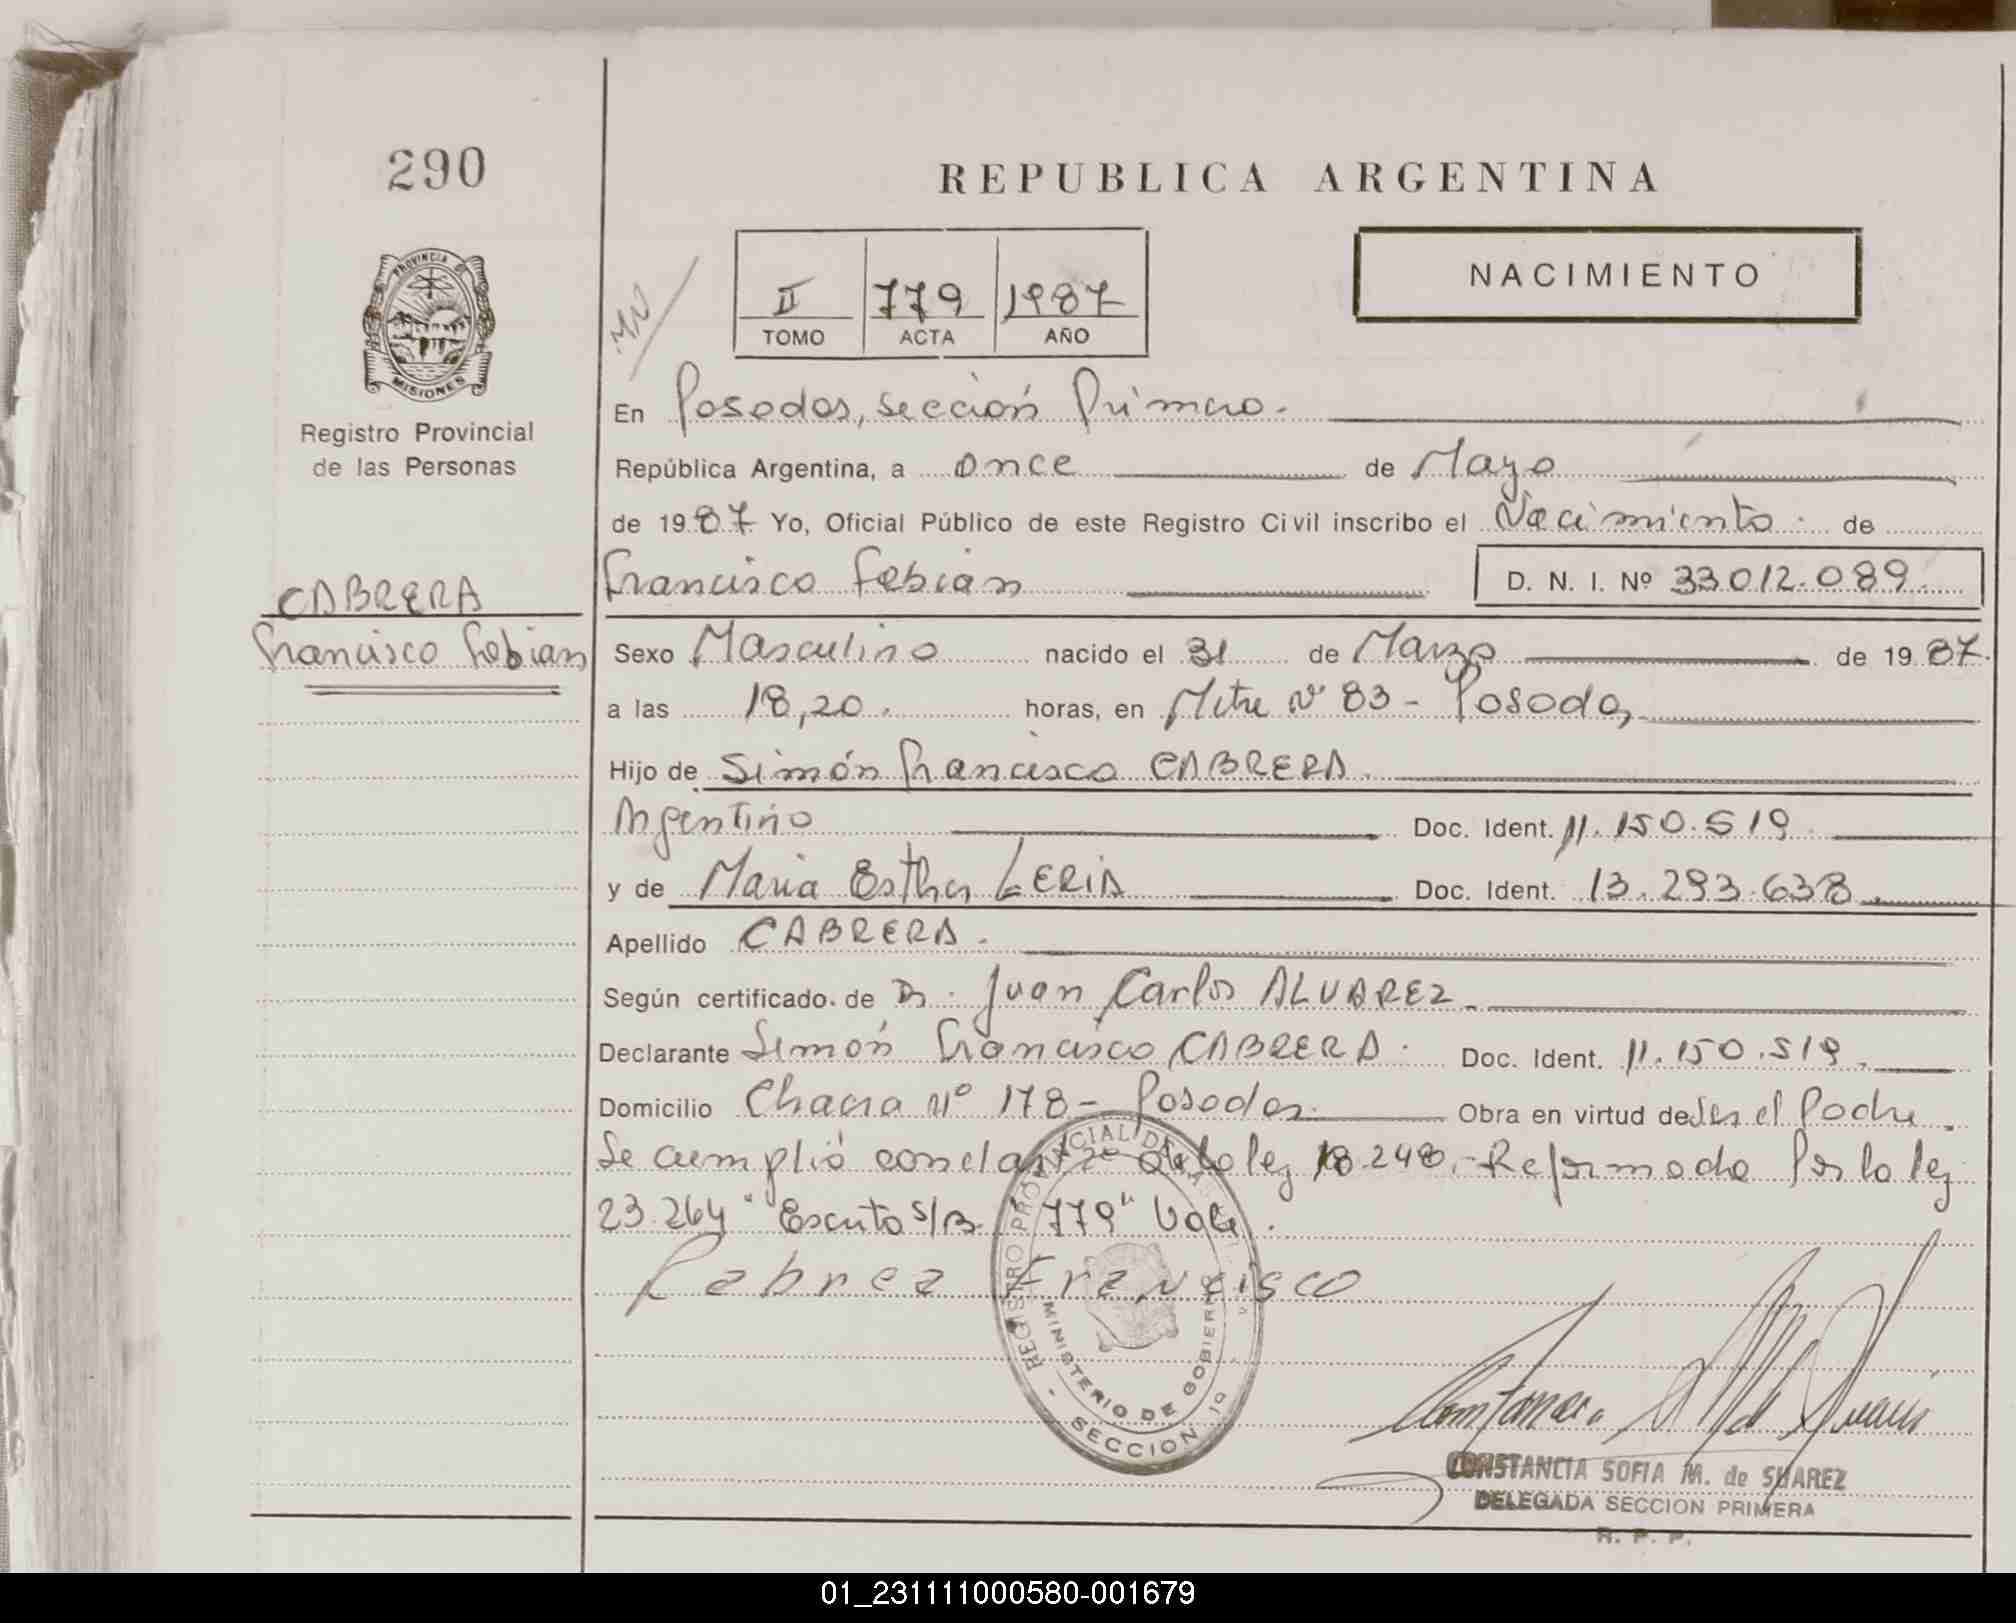 290
REPUBLICA ARGENTINA
PROVINCIA DE
MISIONES
Registro Provincial
de las Personas
CABRERA
Francisco Fabian
MN
II 779 1987
TOMO ACTA AÑO
NACIMIENTO
En Posadas, sección Primera.
República Argentina, a once de Mayo
de 1987 Yo, Oficial Público de este Registro Civil inscribo el Nacimiento de
Francisco Fabian D. N. I. Nº 33.012.089
Sexo Masculino nacido el 31 de Marzo de 1987.
a las 18,20. horas, en Mitre Nº 83 - Posadas
Hijo de Simón Francisco CABRERA.
Argentino Doc. Ident. 11.150.519
y de Maria Esther LERIA Doc. Ident. 13.293.638
Apellido CABRERA.
Según certificado de Dr. Juan Carlos ALVAREZ.
Declarante Simón Francisco CABRERA. Doc. Ident. 11.150.519.
Domicilio Chacra Nº 178 - Posadas. Obra en virtud de Ser el Padre.
Se cumplió con el art 2º de la ley 18.248.- Reformada Por la ley
23.264 "Escrito s/B. 779" Vale.
Cabrea Francisco
REGISTRO PROVINCIAL DE LAS
MINISTERIO DE GOBIERNO
SECCION 1ª
CONSTANCIA SOFIA M. de SUAREZ
DELEGADA SECCION PRIMERA
R. P. P.
01_231111000580-001679